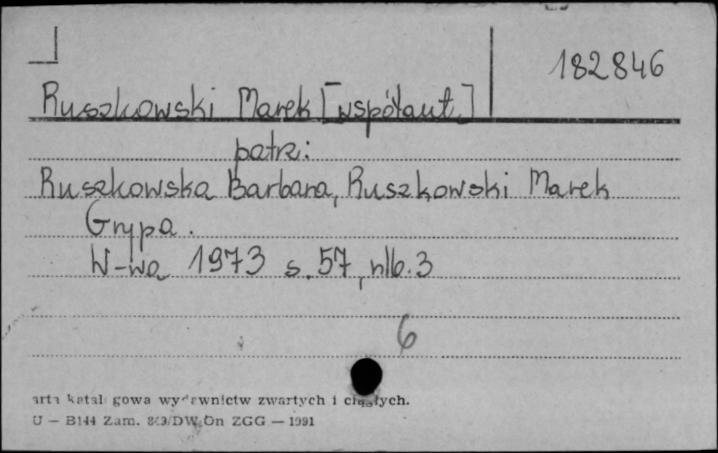 182846
Ruszkowski Marek [współaut.]
patrz:
Ruszkowska Barbara, Ruszkowski Marek
Grypa.
W-wa 1973 s. 57, nlb. 3
6
arta katal gowa wydawnictw zwartych i ciągłych.
U — B144 Zam. DW On ZGG — 1991